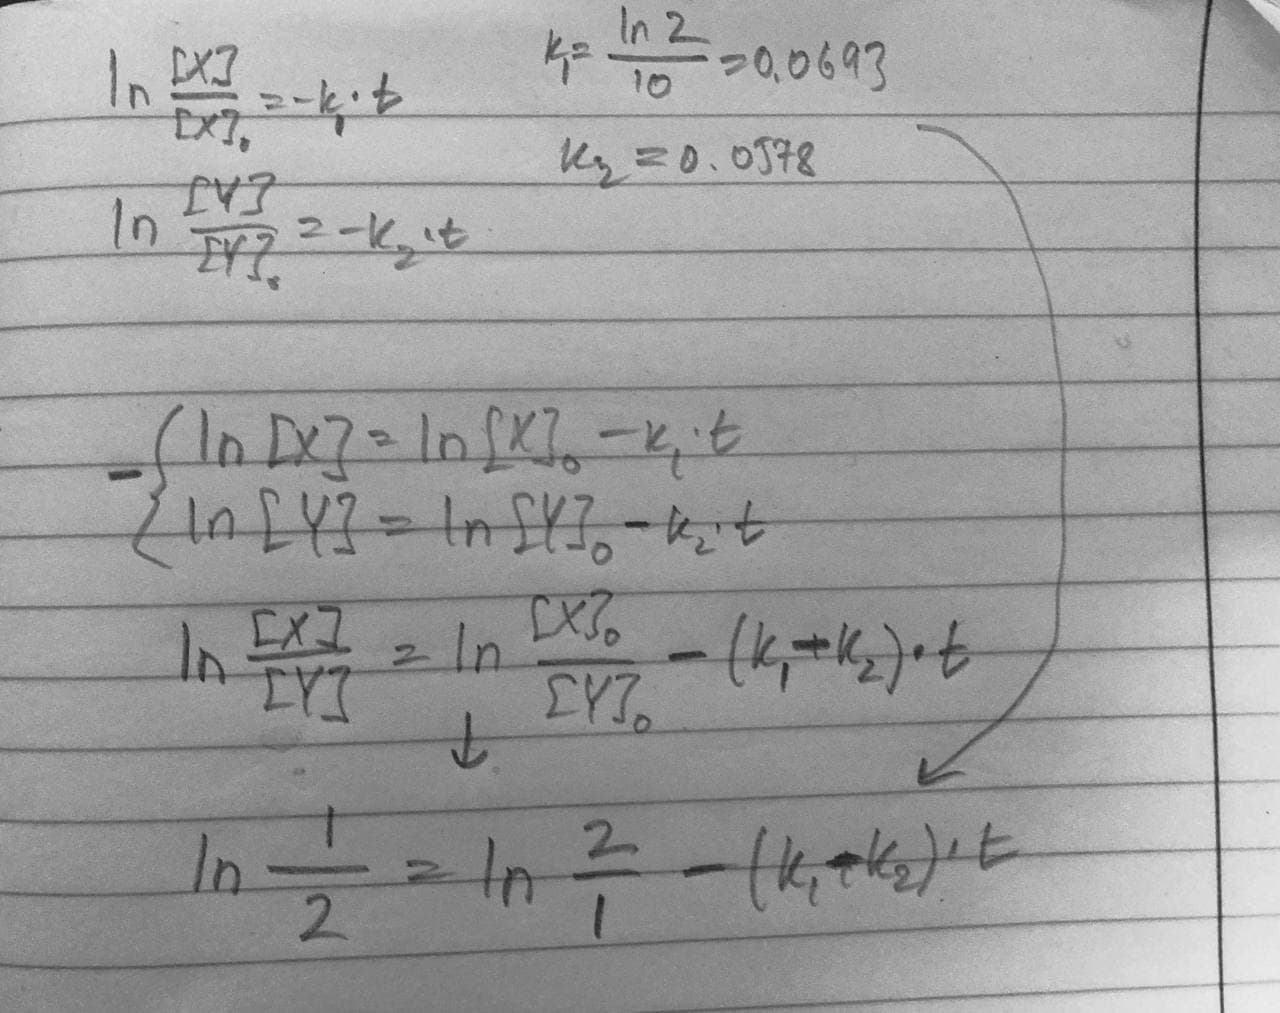 ln [X]/[X]₀ = -k₁·t
k₁ = ln 2/10 = 0,0693
k₂ = 0.0578
ln [Y]/[Y]₀ = -k₂·t
- { ln [X] = ln [X]₀ - k₁·t
ln [Y] = ln [Y]₀ - k₂·t
ln [X]/[Y] = ln [X]₀/[Y]₀ - (k₁-k₂)·t
↓
ln 1/2 = ln 2/1 - (k₁-k₂)·t